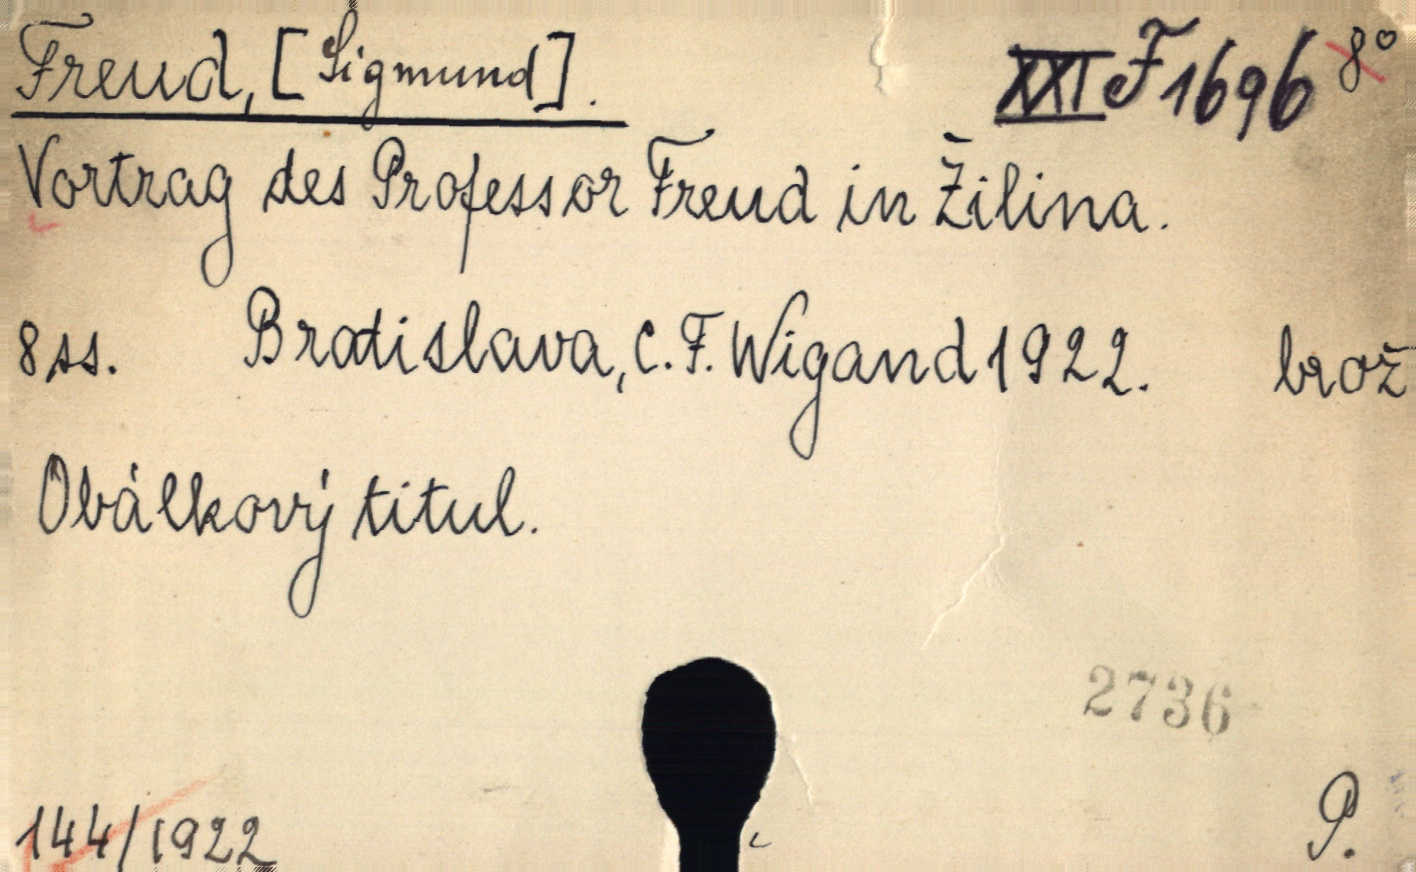 Freud, [Sigmund]. XXI F 1696 8°
Vortrag des Professor Freud in Žilina.
8 ss. Bratislava, C. F. Wigand 1922. brož
Obálkový titul.
2736
144/1922 P.